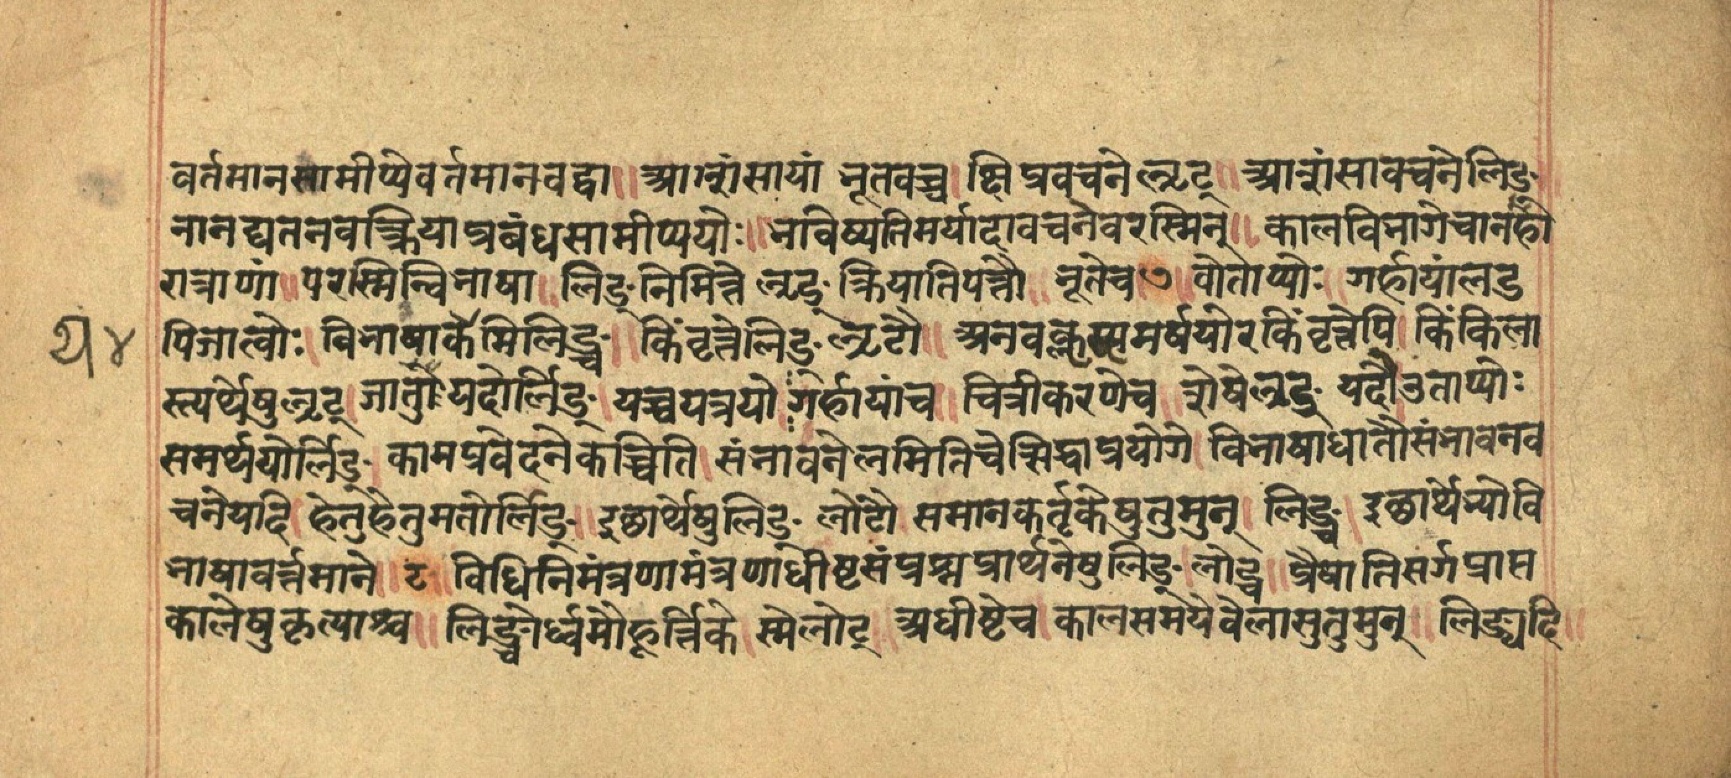 वर्तमानसामीप्येवर्तमानवद्वा॥ आशंसायां भूतवच्च। क्षिप्रवचने ऌट्॥ आशंसावचनेलिङ्
नानद्यतनवत्क्रियाप्रबंधसामीप्ययोः॥ भविष्यतिमर्यादावचनेवरस्मिन्॥ कालविभागेचानहो
रात्राणां॥ परस्मिन्विभाषा॥ लिङ्निमित्ते ऌङ् क्रियातिपत्तौ॥ भूतेच ७॥ वोताप्योः। गर्हायांलड
पिजात्वोः। विभाषाकथमिलिङ्च। किंवृत्तेलिङ्ऌटौ॥ अनवक्लृप्त्यमर्षयोरकिंवृत्तेपि। किंकिला
स्त्यर्थेषुऌट्। जातुयदोर्लिङ्। यच्चयत्रयोः॥ गर्हायांच॥ चित्रीकरणेच। शेषेऌङ् यदौउताप्योः
समर्थयोर्लिङ्। कामप्रवेदनेकच्चिति। संभावनेलमितिचेत्सिद्धाप्रयोगे। विभाषाधातौसंभावनव
चनेयदि। हेतुहेतुमतोर्लिङ्॥ इछार्थेषुलिङ् लोटौ। समानकर्तृकेषुतुमुन्। लिङ्च। इछार्थेभ्योवि
भाषावर्त्तमाने॥ ८॥ विधिनिमंत्रणामंत्रणाधीष्टसंप्रश्नप्रार्थनेषुलिङ्। लोट्च॥ प्रैषातिसर्गप्राप्त
कालेषुकृत्याश्च॥ लिङ्चोर्ध्वमौहूर्त्तिके। स्मेलोट्। अधीष्टेच। कालसमयवेलासुतुमुन्॥ लिङ्यदि॥